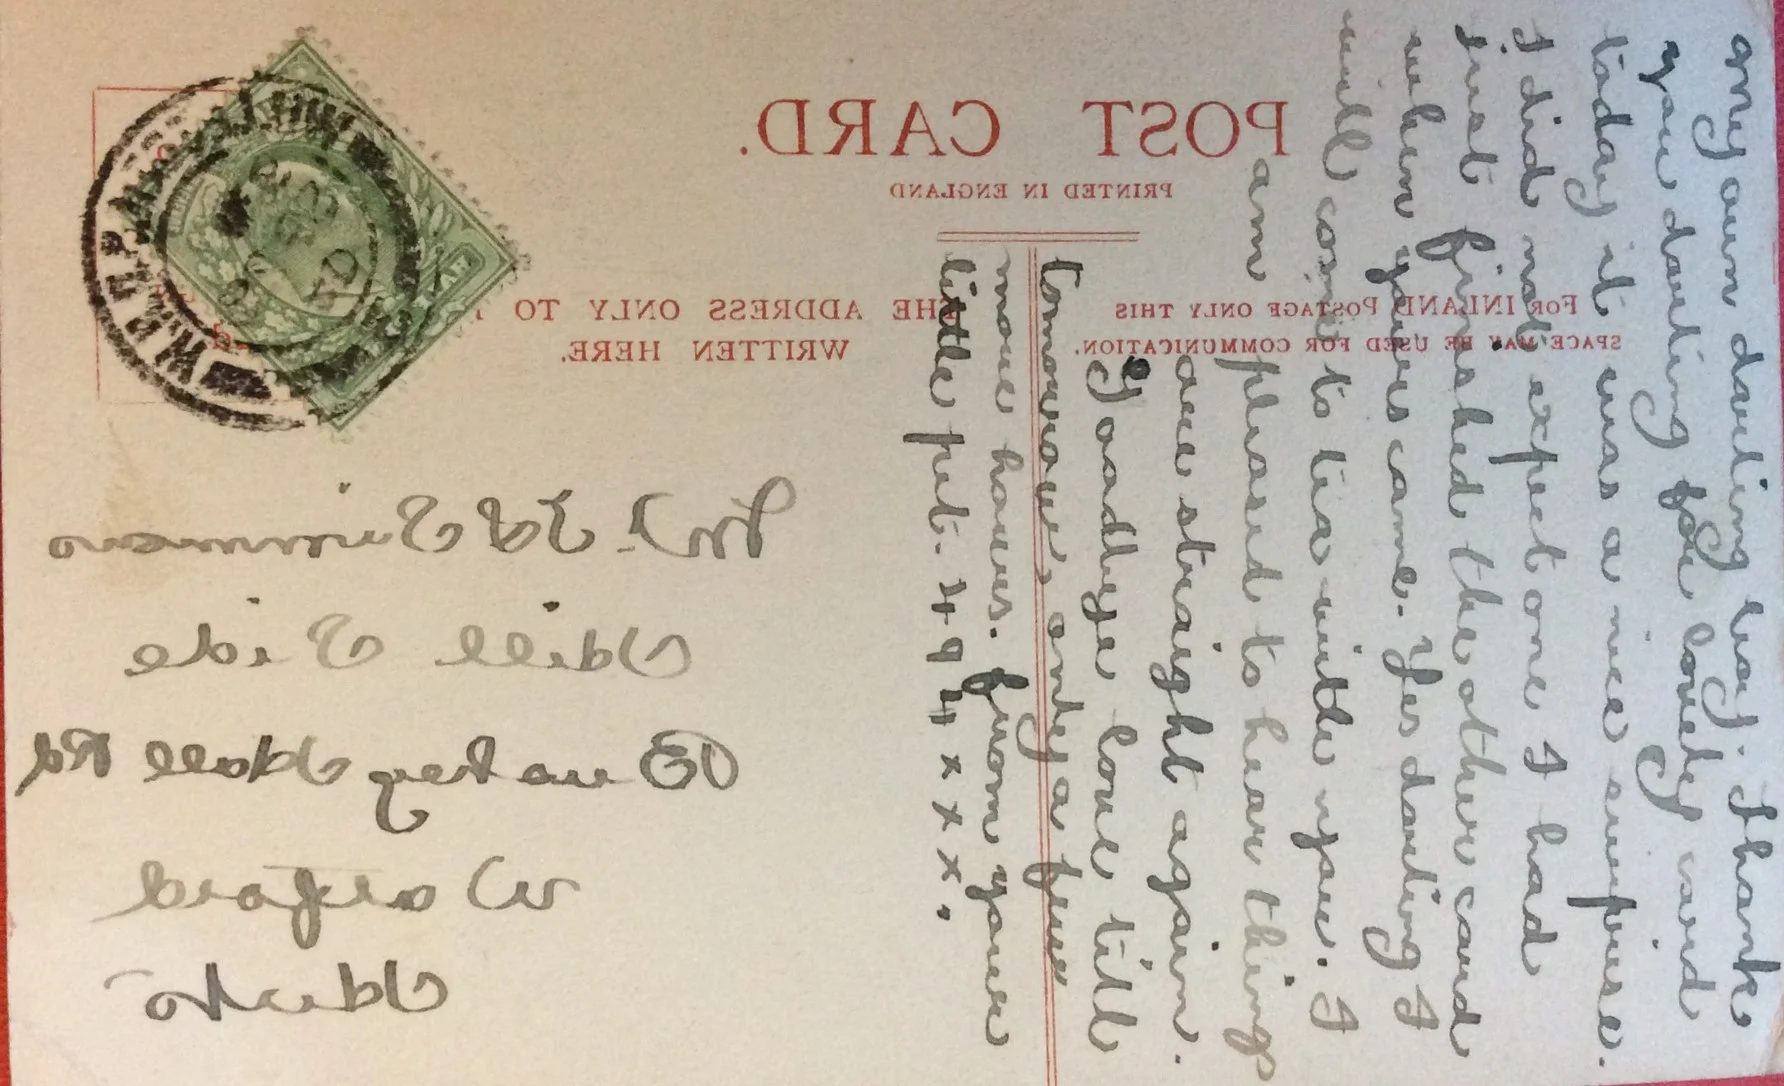 POST CARD.
PRINTED IN ENGLAND
FOR INLAND POSTAGE ONLY THIS
SPACE MAY BE USED FOR COMMUNICATION.
THE ADDRESS ONLY TO
WRITTEN HERE.
My own darling boy. Thank
you darling for lovely card
today it was a nice surprise.
I did not expect one I had
just finished the other card
when yours came. Yes darling I
will come to tea with you. I
am pleased to hear things
are straight again.
Goodbye love till
tomorrow, only a few
more hours. from your
little pet. 4 9 4 x x x.
Mr. E A Simmons
Hill Side
Bushey Hall Rd
Watford
Herts